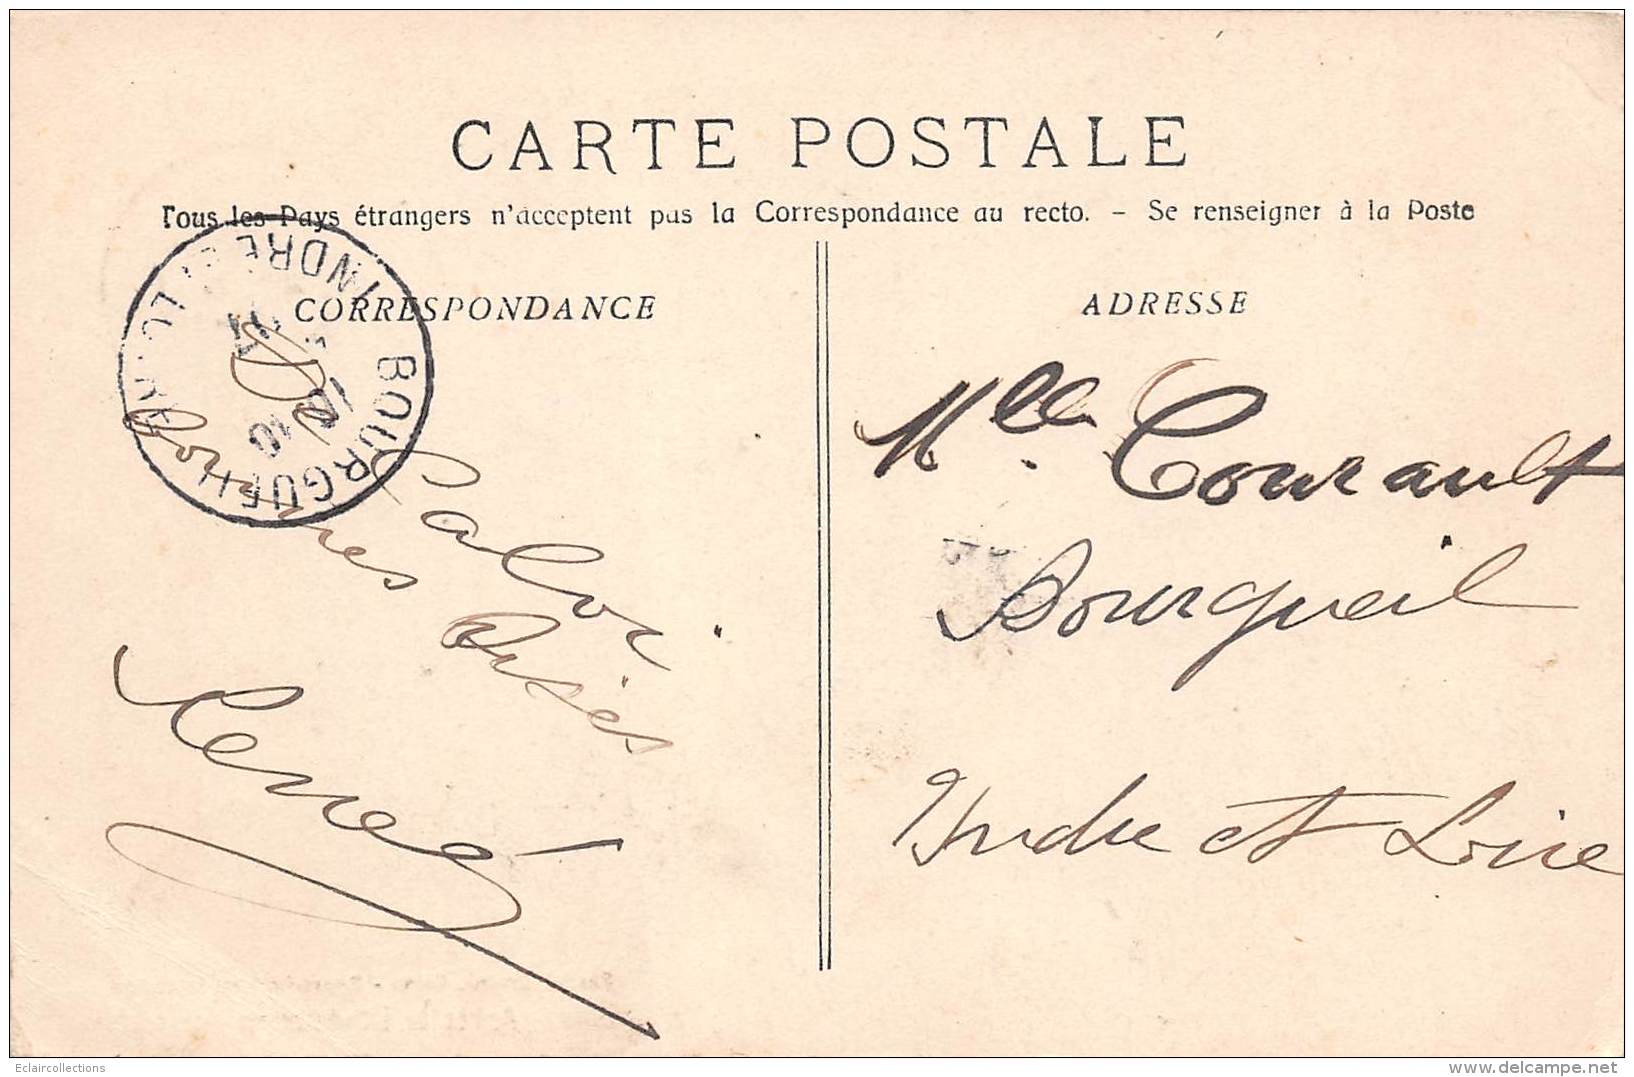 CARTE POSTALE
Tous les Pays étrangers n'acceptent pas la Correspondance au recto. - Se renseigner à la Poste
CORRESPONDANCE
ADRESSE
BOURGUEIL
INDRE ET LOIRE
10
De Calvi
bonnes Bises
René
Mlle Courault
Bourgueil
Indre et Loire
Eclaircollections
www.delcampe.net